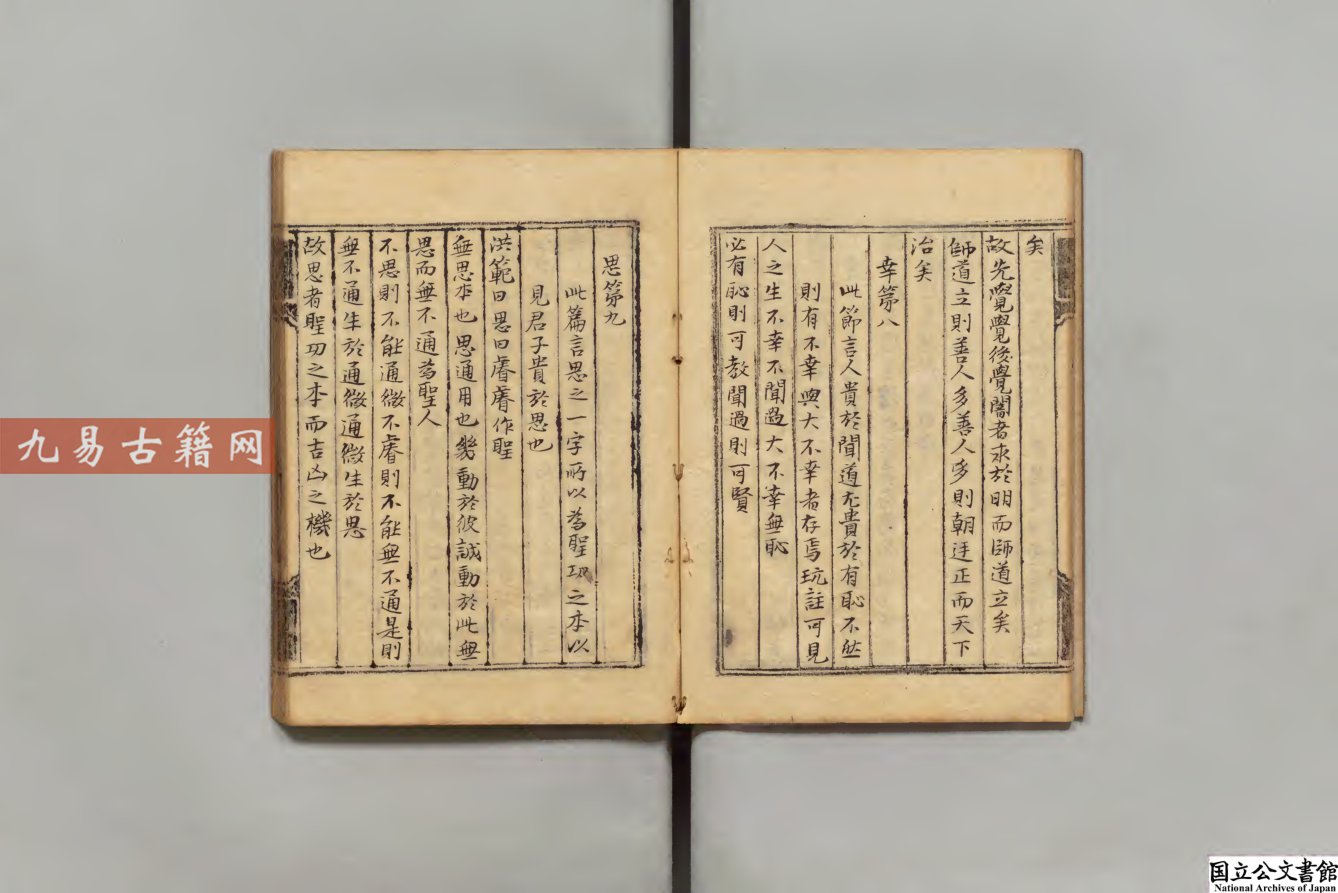 矣
故先覺覺後覺闇者求於明而師道立矣
師道立則善人多善人多則朝廷正而天下
治矣
幸第八
此節言人貴於聞道尤貴於有恥不然
則有不幸與大不幸者存焉玩註可見
人之生不幸不聞過大不幸無恥
必有恥則可教聞過則可賢
思第九
此篇言思之一字所以為聖功之本以
見君子貴於思也
洪範曰思曰睿睿作聖
無思本也思通用也幾動於彼誠動於此無
思而無不通為聖人
不思則不能通微不睿則不能無不通是則
無不通生於通微通微生於思
故思者聖功之本而吉凶之機也
九易古籍网
国立公文書館
National Archives of Japan